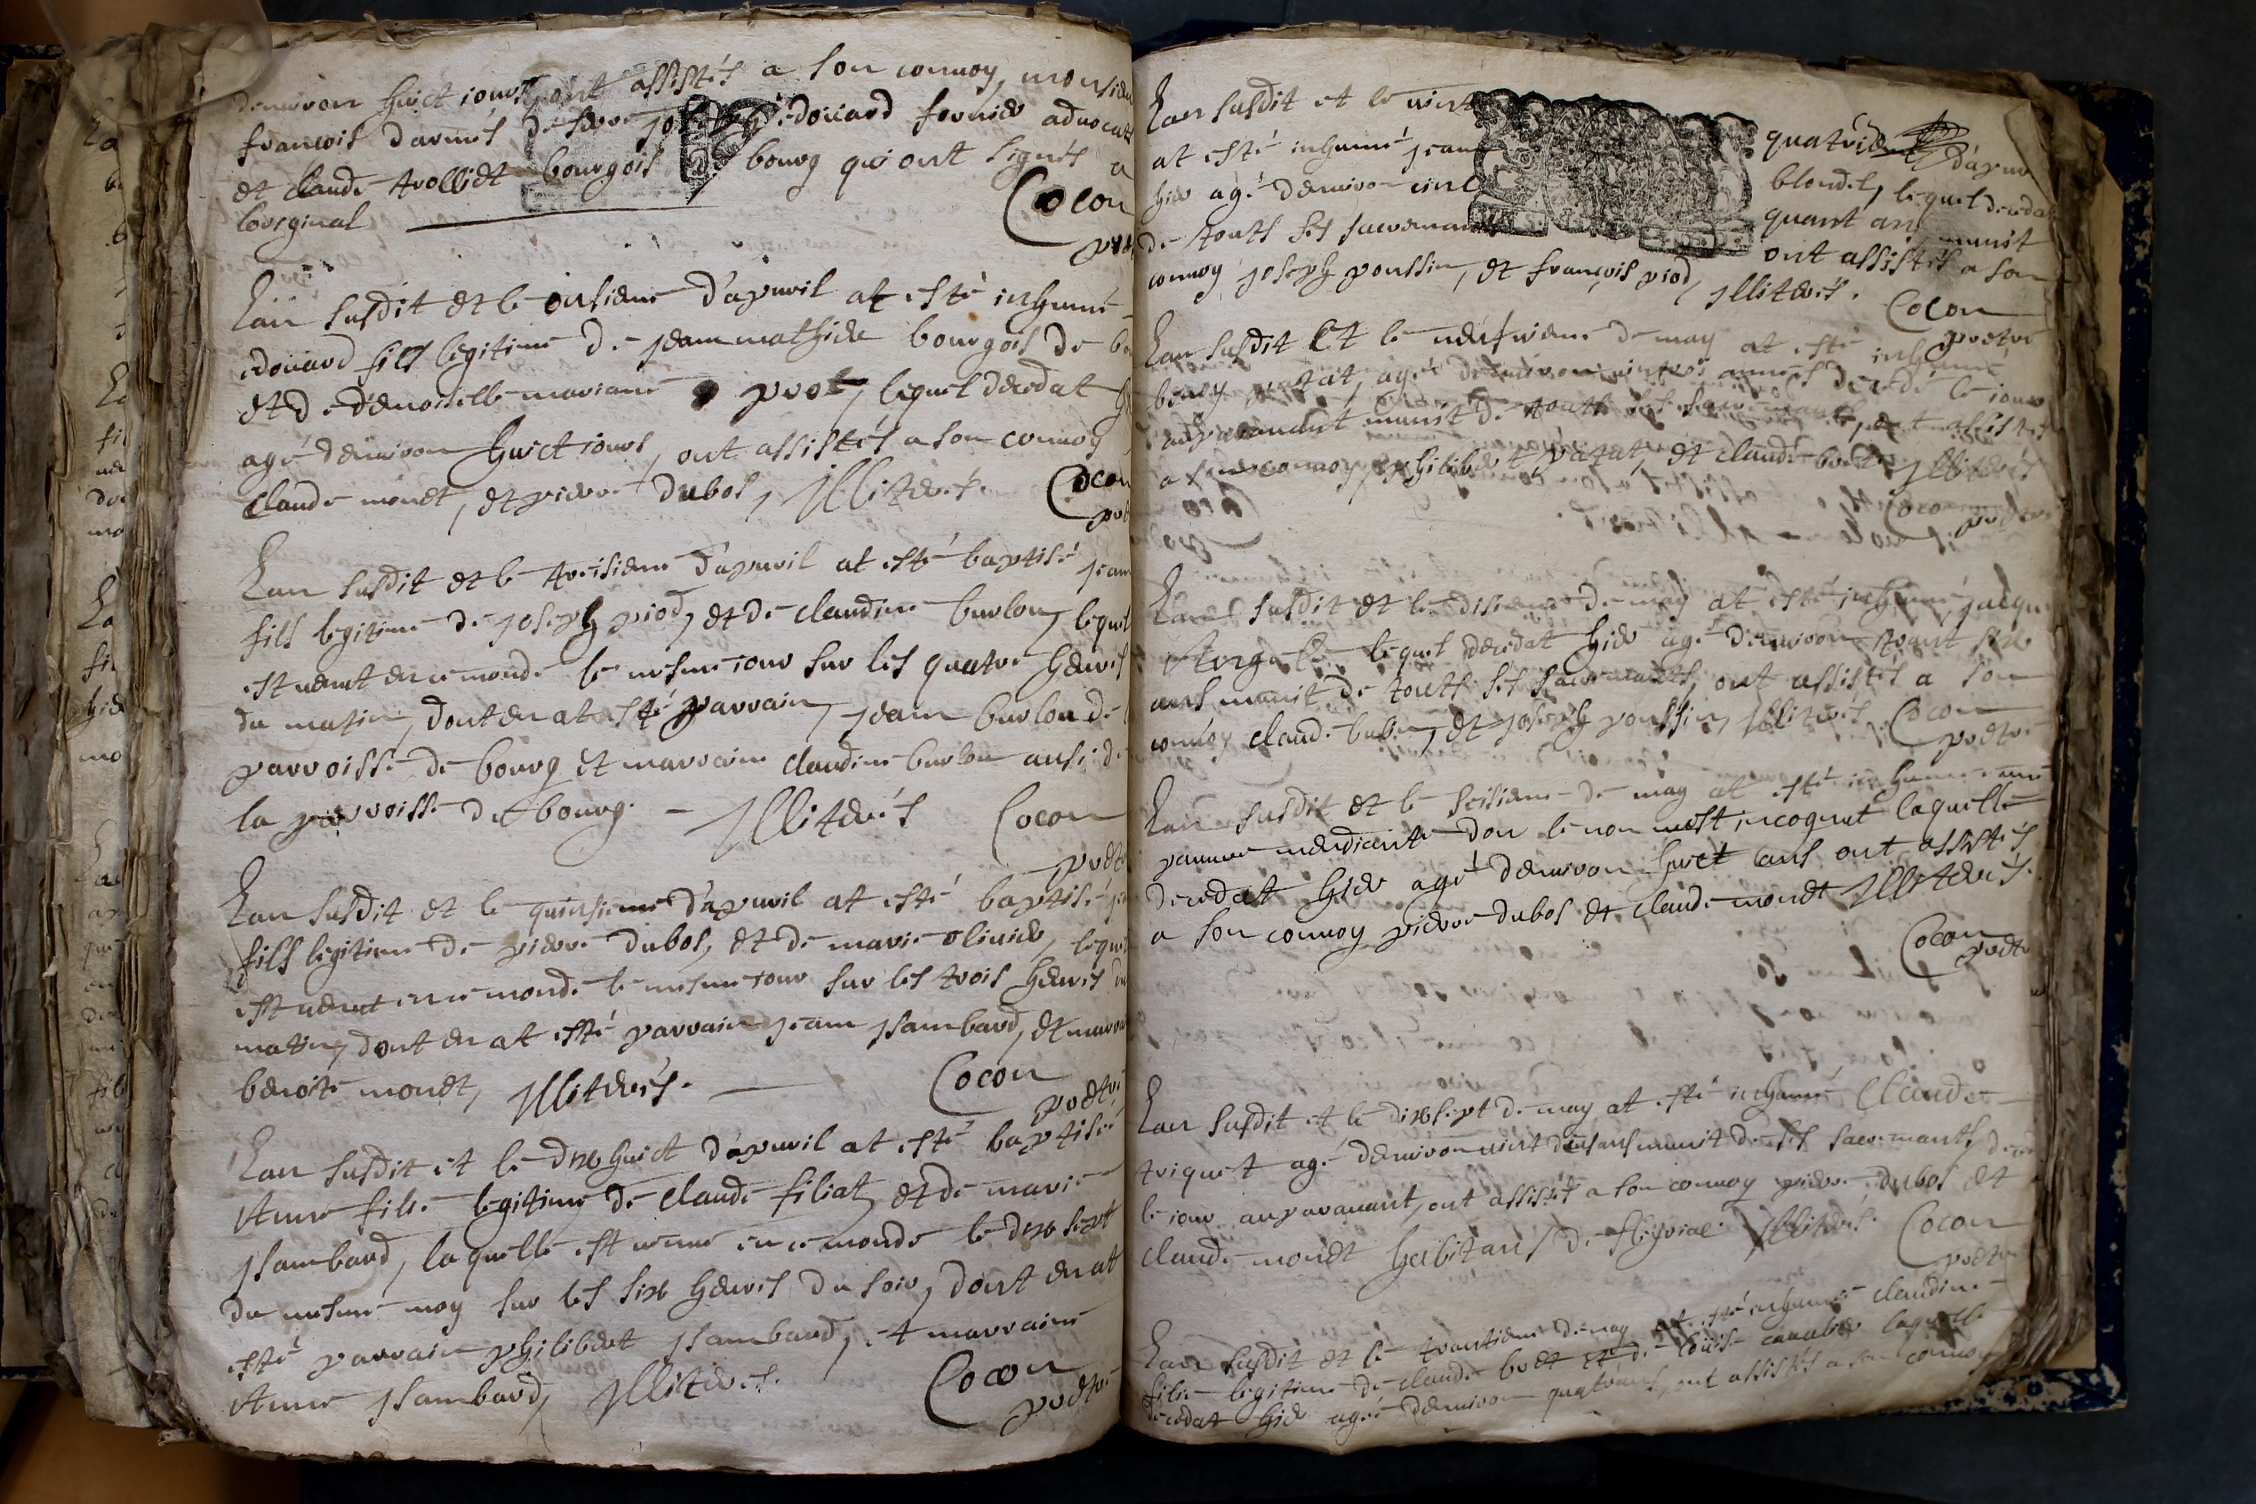 denviron huict jours ont assistés a son convoy, monsieur
francois darmés de serre joseph edouard fornier advocat
et claude trolliet bourgois bourg qui ont signés a
loriginal
Cocon
Lan susdit et le onsieme d'apvril at esté inhumé
edouard fils legitime de jeam mathieu bourgois de
et de demoiselle mariane prot, lequel decedat
agé denviron huict jours, ont assistés a son convoy
claude monet, et pierre dubos, jlliterés. Cocon
Lan susdit et le treisieme d'apvril at esté baptisé jeam
fils legitime de joseph piod, et de claudine burlon, lequel
est venut en ce monde le mesme jour sur les quatre heures
du matin, dont en at esté parrain, jeam burlon de
parroisse de bourg et marraine claudine burlon ausi de
la parroisse de bourg. — jlliterés Cocon
pretre
Lan susdit et le quinsieme d'apvril at esté baptisé
fils legitime de pierre dubos, et de marie olivier, lequel
est venut en ce monde le mesme jour sur les trois heures du
matin, dont en at esté parrain jeam jsambard, et
benoite monet, jlliterés. — Cocon
pretre
Lan susdit et le dixhuict d'apvril at esté baptisée
Anne fille legitime de claude filiat, et de marie
jsambard, laquelle est venue en ce monde le dixsept
du mesme moy sur les six heures du soir, dont en at
esté parrain philibert jsambard, et marraine
Anne jsambard, jlliterés. Cocon
pretre
Lan susdit et le vint quatrieme d'apvril
at esté inhumé jeam blondel, lequel decedat
hier agé denviron cinquant ans munit
de touts ses sacremants ont assistés a son
convoy joseph poussin, et françois piod, jlliterés. Cocon
pretre
Lan susdit Et le neufvieme de may at esté inhumé
agé denviron années decedé le jour
auparavant munit de touts ses sacremants, ont assistés
a son convoy philibert et claude boet jlliterés
Cocon
pretre
Lan susdit et le disieme de may at esté inhumé jacque
lequel decedat hier agé denviron
ans munit de touts ses sacremants, ont assistés a son
convoy claude et joseph poussin, jlliterés. Cocon
pretre
Lan susdit et le seisieme de may at esté inhumée une
pauvre mendiante don le non mest incognut laquelle
decedat hier agé denviron huict ans ont assistés
a son convoy pierre dubos et claude monet jlliterés.
Cocon
pretre
Lan susdit et le dixsept de may at esté inhumé Claude
triquet agé denviron vint ans munit de ses sacremants,
le jour auparavant, ont assistés a son convoy pierre dubos et
claude monet habitans de jlliterés. Cocon
pretre
Lan susdit et le trantieme de may at esté inhumée claudine
fille legitime de claude boet et de louise laquelle
decedat hier agée denviron quatre ans, ont assistés a son convoy